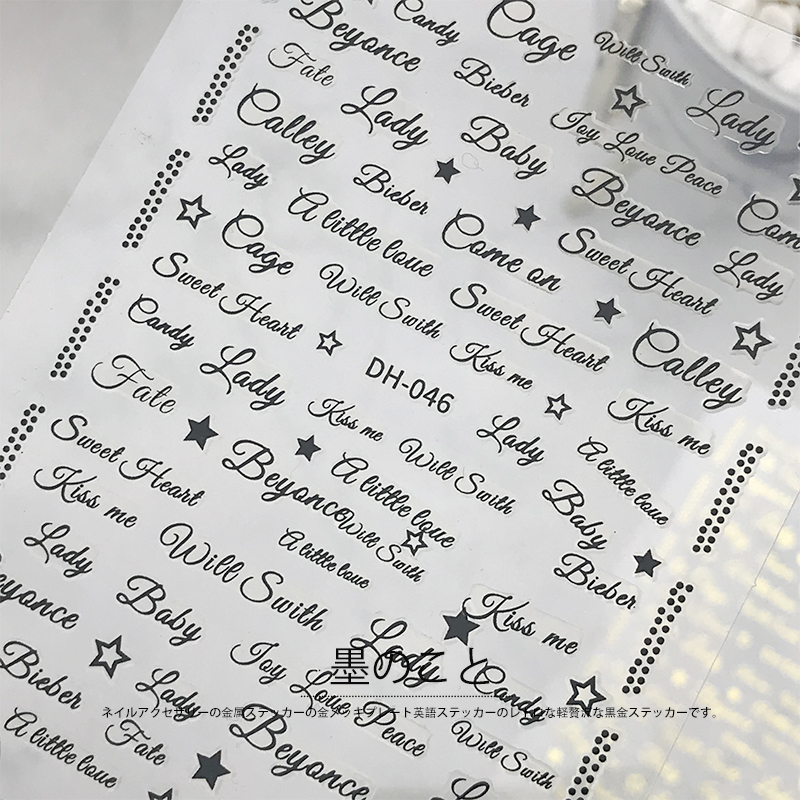 Beyonce
Candy
Cage
Will Swith
Lady
Fate
Bieber
Joy Love Peace
Calley
Lady
Baby
Beyonce
Com
Lady
Bieber
Sweet Heart
Lady
A little love
Come on
Cage
Will Swith
Sweet Heart
Calley
Sweet Heart
Kiss me
Kiss me
Candy
Lady
DH-046
Lady
A little love
Fate
Kiss me
Will Swith
Baby
Sweet Heart
Beyonce
A little love
Bieber
Kiss me
Will Swith
A little love
Kiss me
Lady
Will Swith
Lady
Candy
eyonce
Baby
Joy Love Peace
Will Swith
Bieber
Lady
Beyonce
A little love
Fate
墨のこと
ネイルアクセサリーの金属ステッカーの金メッキプレート英語ステッカーのレトロな軽贅沢な黒金ステッカーです。